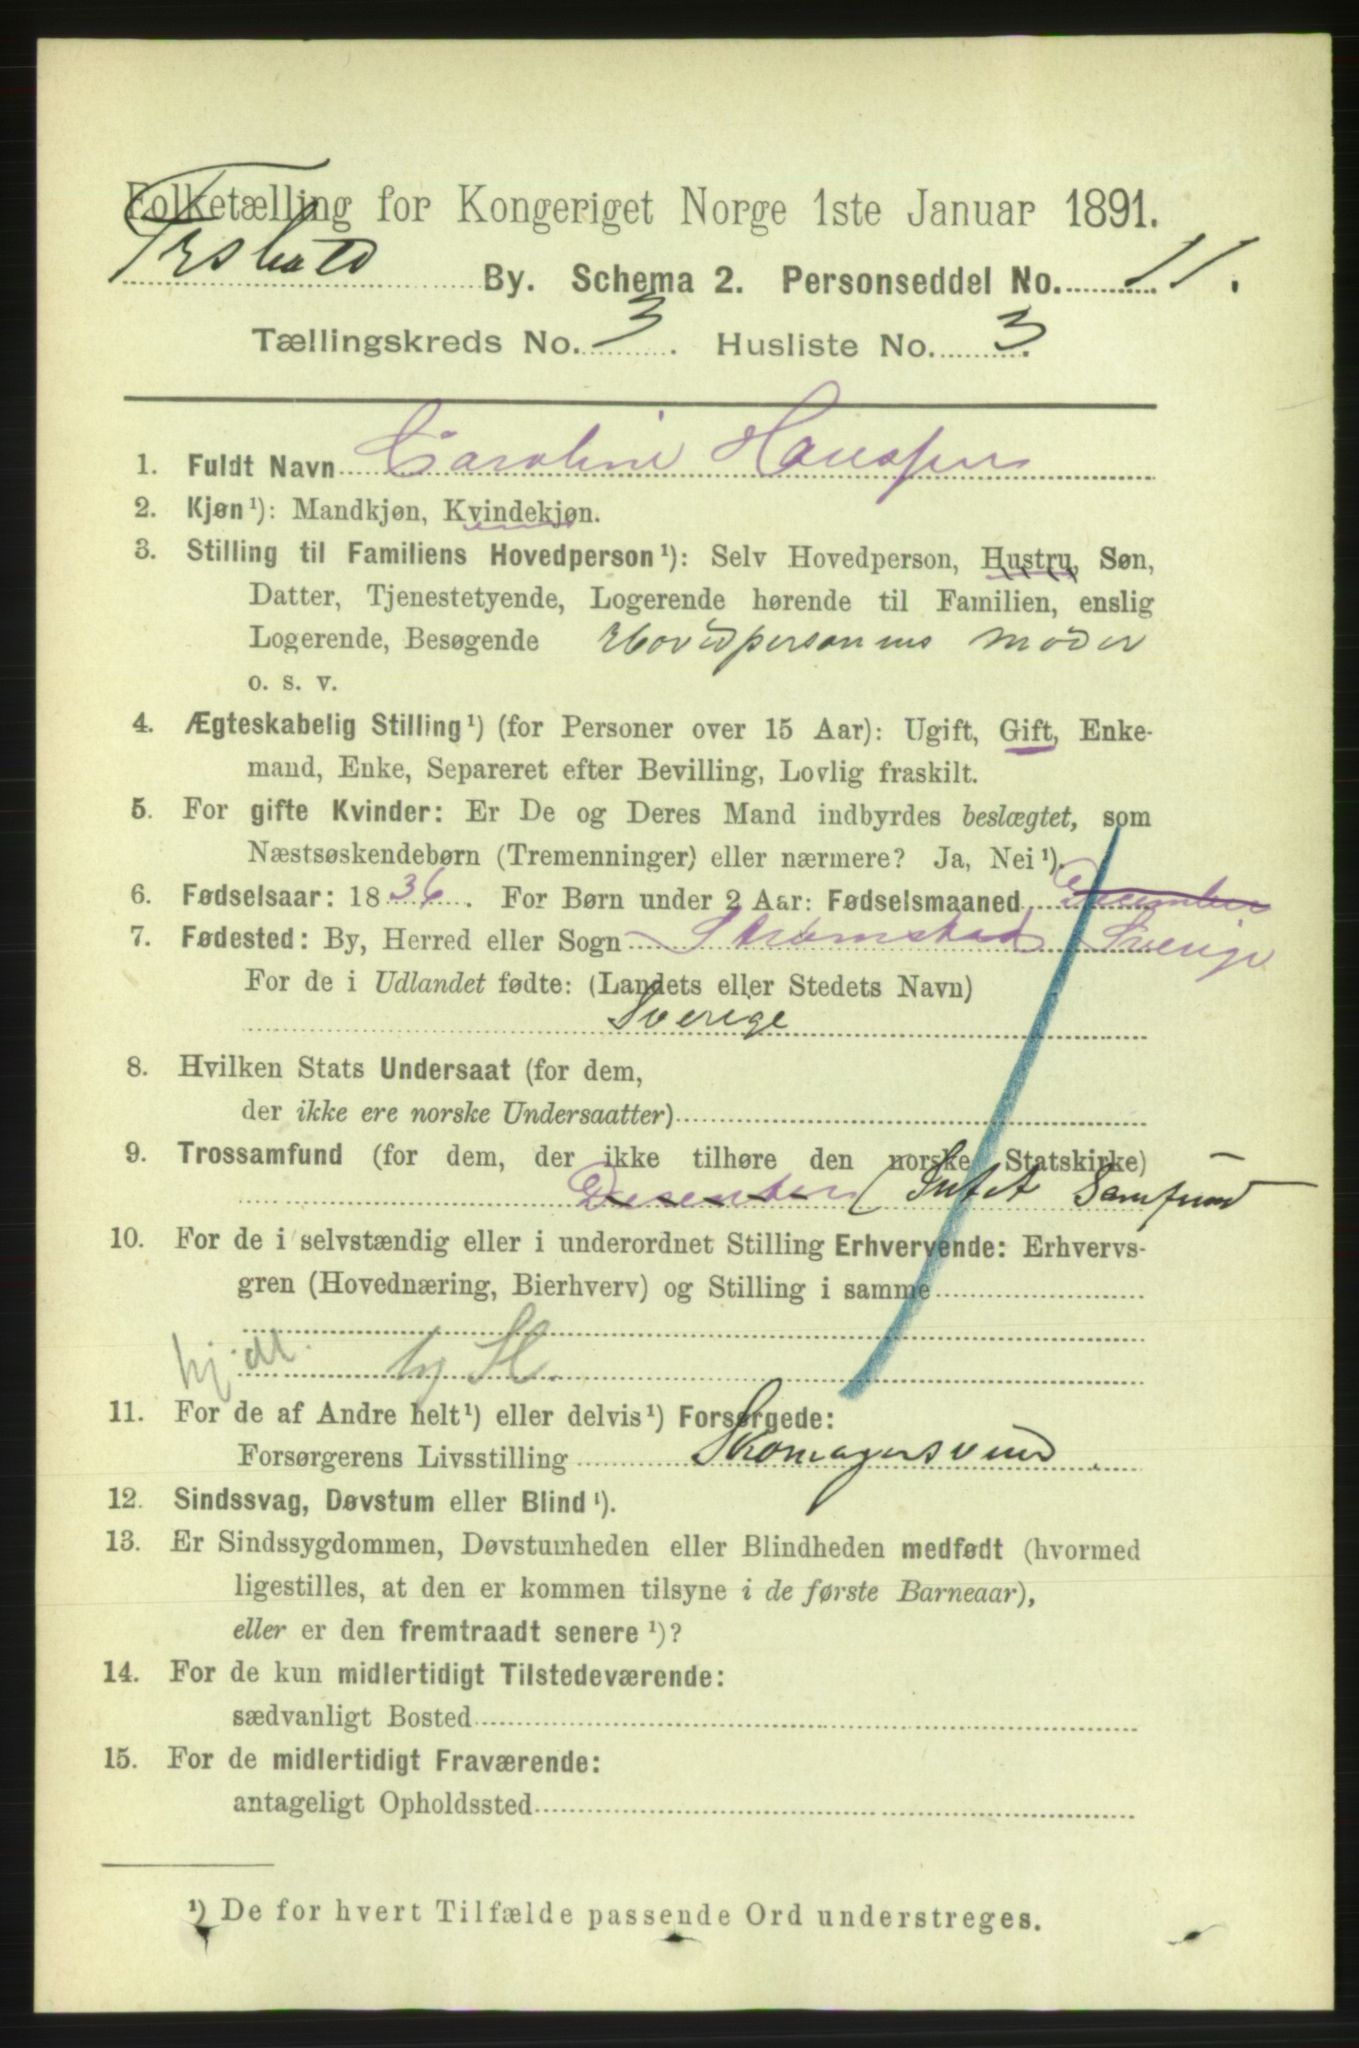 Folketælling for Kongeriget Norge 1ste Januar 1891.
By. Schema 2. Personseddel No. 11.
Tællingskreds No. 3. Husliste No. 3.
1. Fuldt Navn Caroline
2. Kjøn ¹): Mandkjøn, Kvindekjøn.
3. Stilling til Familiens Hovedperson ¹): Selv Hovedperson, Hustru, Søn,
Datter, Tjenestetyende, Logerende hørende til Familien, enslig
Logerende, Besøgende Hovedpersonens Moder
o. s. v.
4. Ægteskabelig Stilling ¹) (for Personer over 15 Aar): Ugift, Gift, Enke-
mand, Enke, Separeret efter Bevilling, Lovlig fraskilt.
5. For gifte Kvinder: Er De og Deres Mand indbyrdes beslægtet, som
Næstsøskendebørn (Tremenninger) eller nærmere? Ja, Nei ¹).
6. Fødselsaar: 1836. For Børn under 2 Aar: Fødselsmaaned December
7. Fødested: By, Herred eller Sogn Strømstad Sverige
For de i Udlandet fødte: (Landets eller Stedets Navn)
Sverige
8. Hvilken Stats Undersaat (for dem,
der ikke ere norske Undersaatter)
9. Trossamfund (for dem, der ikke tilhøre den norske Statskirke)
Desenter (Intet Samfund
10. For de i selvstændig eller i underordnet Stilling Erhvervende: Erhvervs-
gren (Hovednæring, Bierhverv) og Stilling i samme
11. For de af Andre helt ¹) eller delvis ¹) Forsørgede:
Forsørgerens Livsstilling Skomagersvend.
12. Sindssvag, Døvstum eller Blind ¹).
13. Er Sindssygdommen, Døvstumheden eller Blindheden medfødt (hvormed
ligestilles, at den er kommen tilsyne i de første Barneaar),
eller er den fremtraadt senere ¹)?
14. For de kun midlertidigt Tilstedeværende:
sædvanligt Bosted
15. For de midlertidigt Fraværende:
antageligt Opholdssted
¹) De for hvert Tilfælde passende Ord understreges.